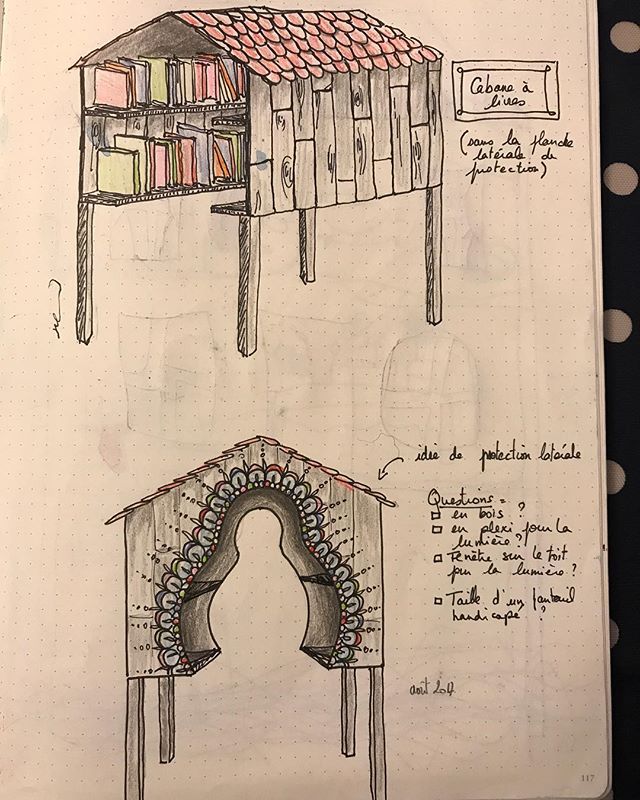 Cabane à
livres
(sans la planche
latérale de
protection)
idée de protection latérale
Questions =
en bois ?
en plexi pour la
lumière ?
Fenêtre sur le toit
pour la lumière ?
Taille d'un fauteuil
handicapé ?
août
117